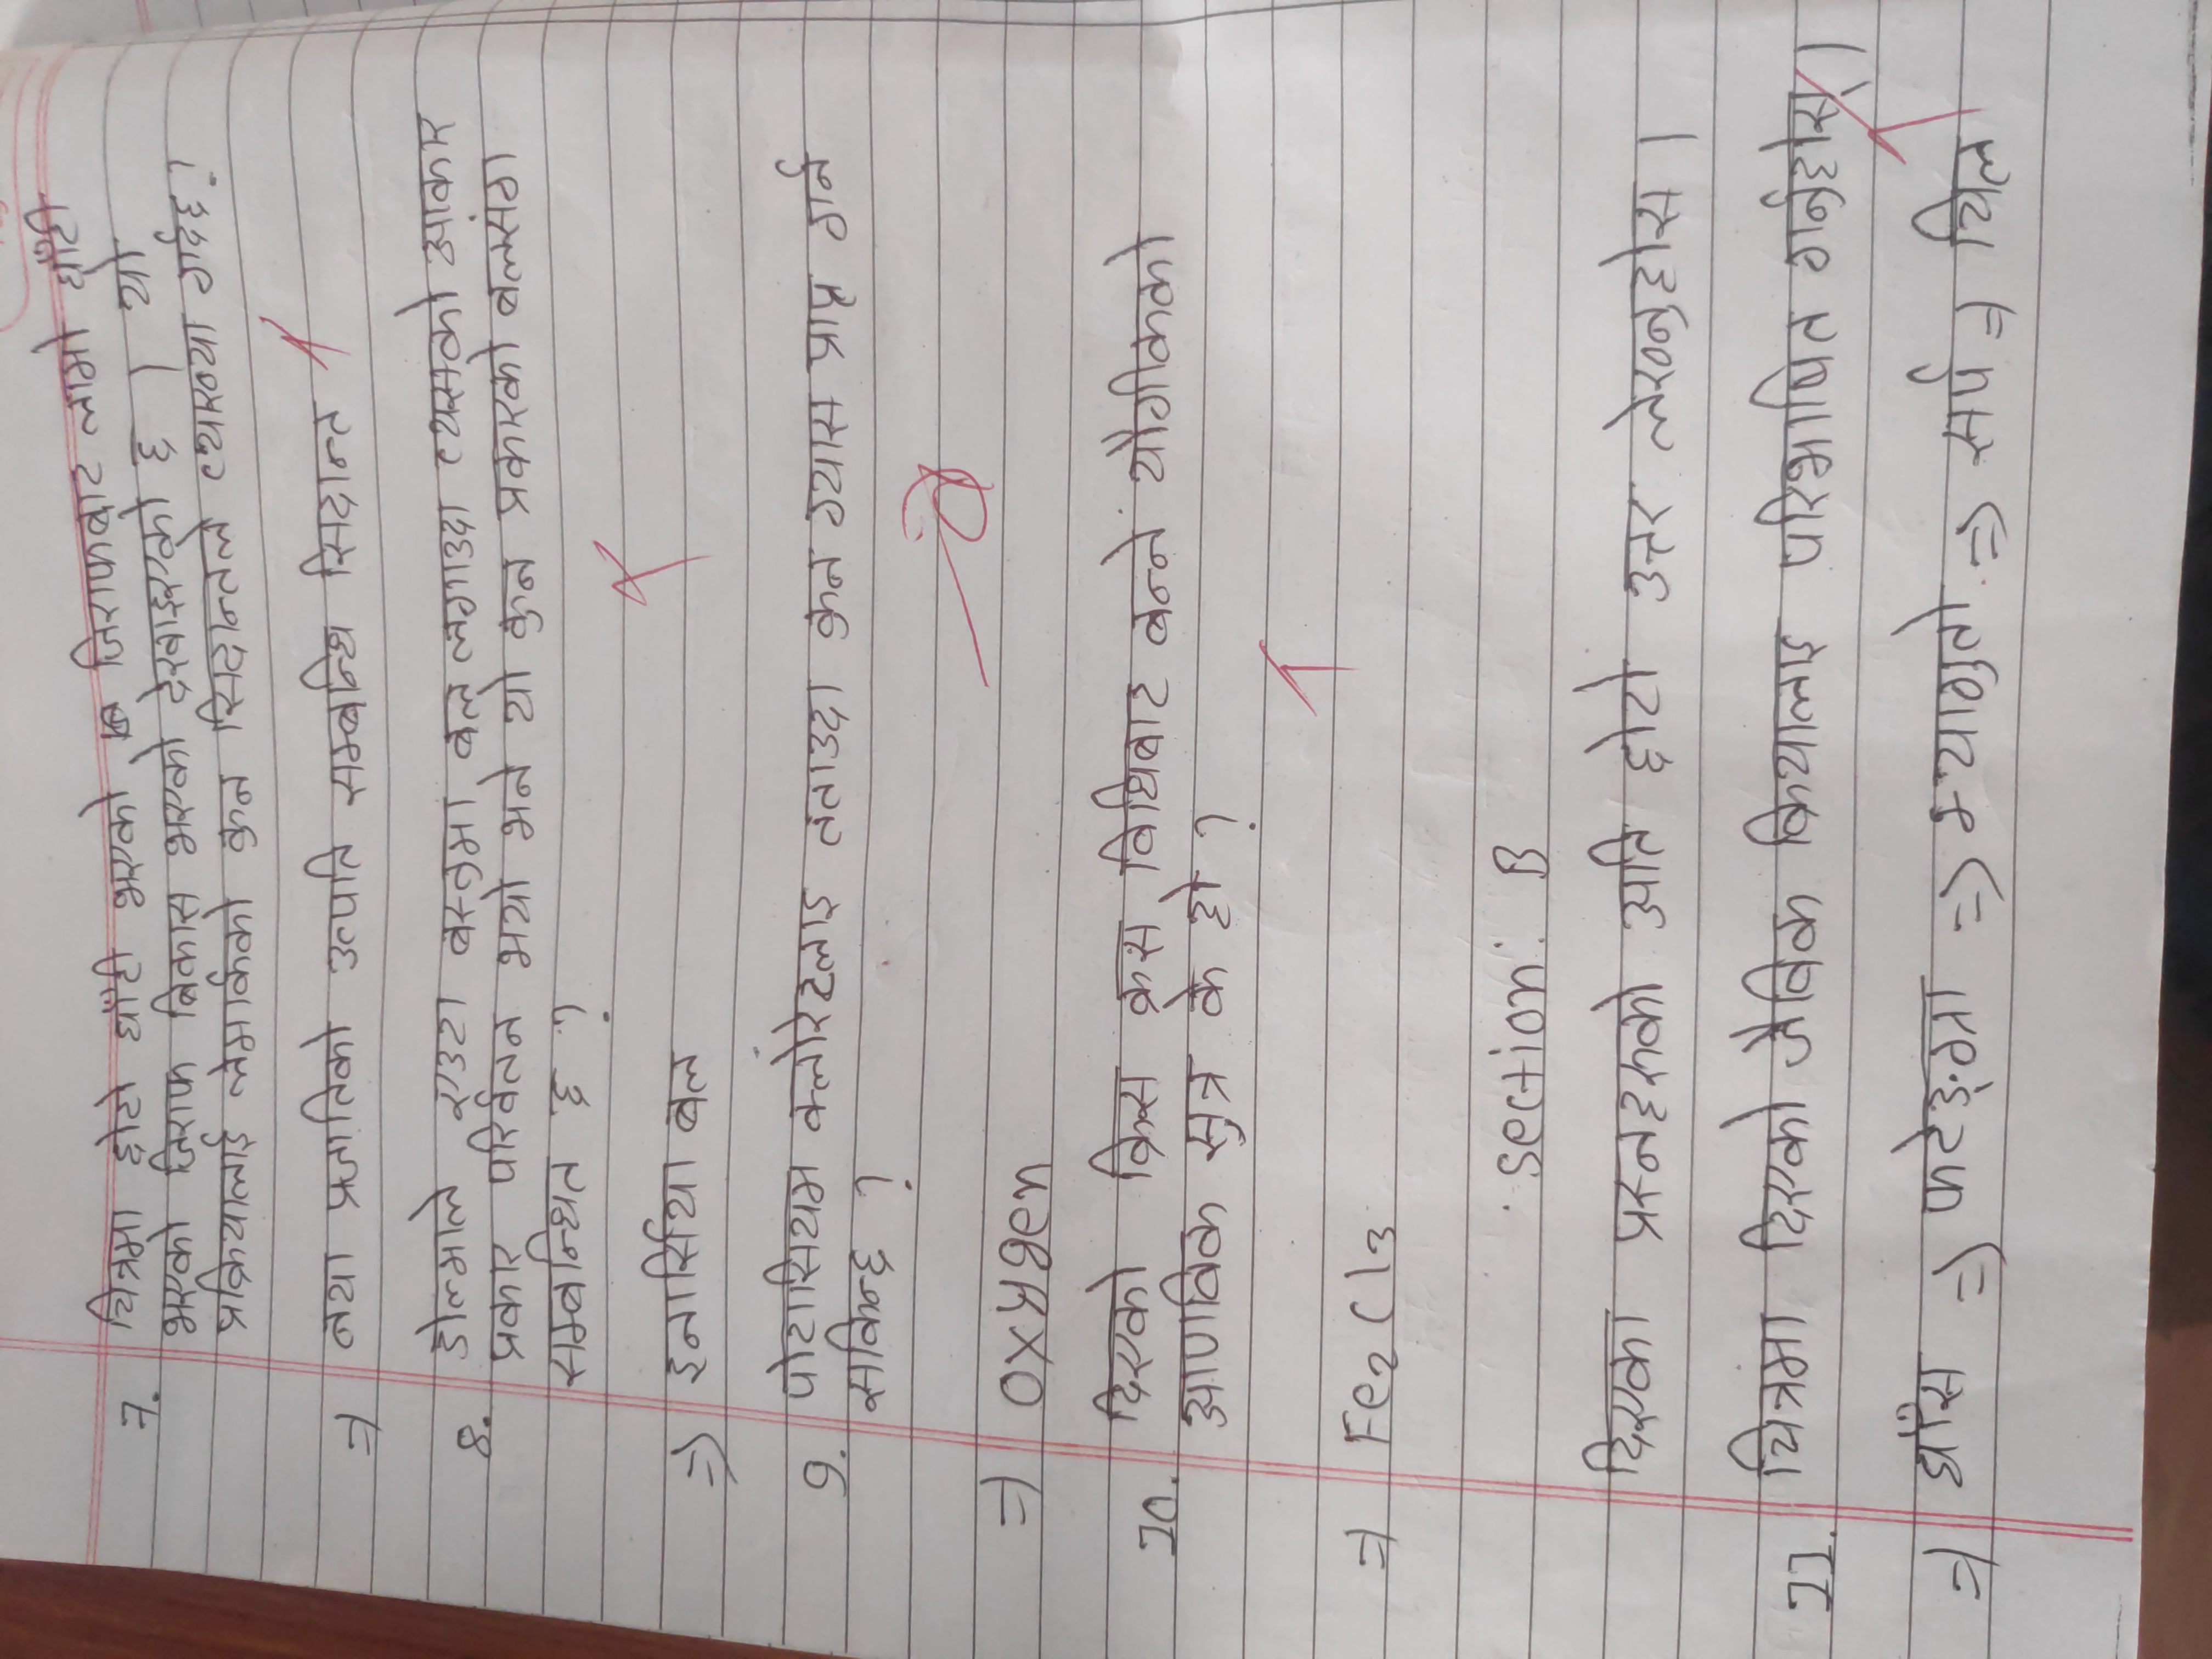 7. चित्रमा छोटो घाँटी भएको जिराफबाट लामो घाँटी
भएको जिराफ बिकास भएको देखाइएको छ । यो
प्रक्रियालाई लेमार्कको कुन सिदान्तले व्याख्या गर्दछ?
=> नया प्रजातिको उत्पति सम्बन्धि सिदान्त
8. डोल्माले एउटा बस्तुमा बल लगाउदा त्यसको आकार
प्रकार परिर्वतन भयो भने यो कुन प्रकारको बलसंग
सम्बन्धित छ ?
=> इनार्सिया बल
9. पोटासियम क्लोरेटलाइ तताउदा कुन ग्यास प्राप्त गर्न
सकिन्छ ?
=> oxygen
10. दिएको क्रिस क्रस विधिबाट बन्ने यौगीकको
आणविक सुत्र के हो ?
=> Fe₂Cl₃
section: B
दिएका प्रस्नहरुको अति छोटो उत्तर लेख्नुहोस ।
11. चित्रमा दिएको जैविक क्रियालाइ परिभाषित गर्नुहोस् ।
=> घाँस => फटेङ्ग्रा => भ्यागुतो => सर्प => चिल